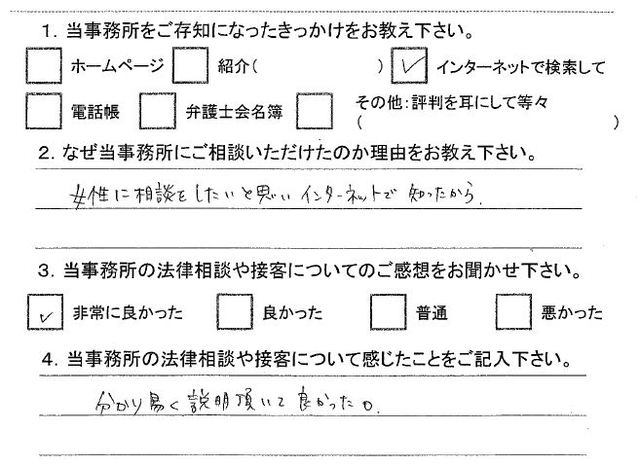 1. 当事務所をご存知になったきっかけをお教え下さい。
ホームページ 紹介( ) インターネットで検索して
電話帳 弁護士会名簿 その他:評判を耳にして等々
( )
2. なぜ当事務所にご相談いただけたのか理由をお教え下さい。
女性に相談をしたいと思いインターネットで知ったから.
3. 当事務所の法律相談や接客についてのご感想をお聞かせ下さい。
非常に良かった 良かった 普通 悪かった
4. 当事務所の法律相談や接客について感じたことをご記入下さい。
分かり易く説明頂いて良かった。